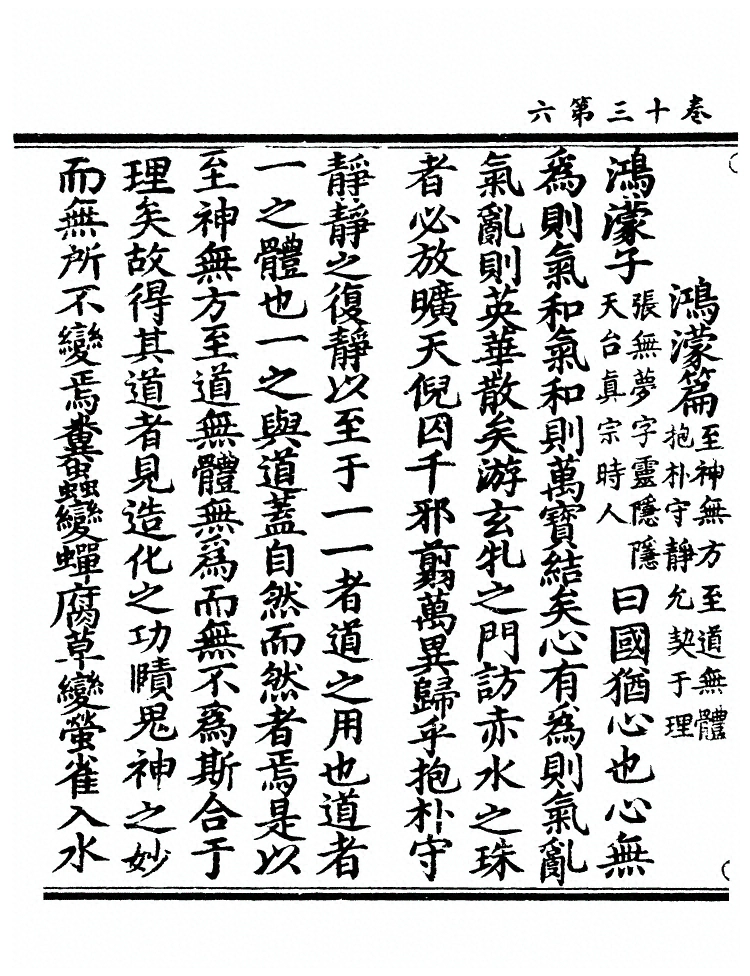 卷十三第六
鴻濛篇
至神無方至道無體
抱朴守靜允契于理
鴻濛子
張無夢字靈隱隱
天台眞宗時人
曰國猶心也心無
爲則氣和氣和則萬寶結矣心有爲則氣亂
氣亂則英華散矣游玄牝之門訪赤水之珠
者必放曠天倪囚千邪翦萬異歸乎抱朴守
靜靜之復靜以至于一一者道之用也道者
一之體也一之與道蓋自然而然者焉是以
至神無方至道無體無爲而無不爲斯合于
理矣故得其道者見造化之功賾鬼神之妙
而無所不變焉糞蟲變蟬腐草變螢雀入水